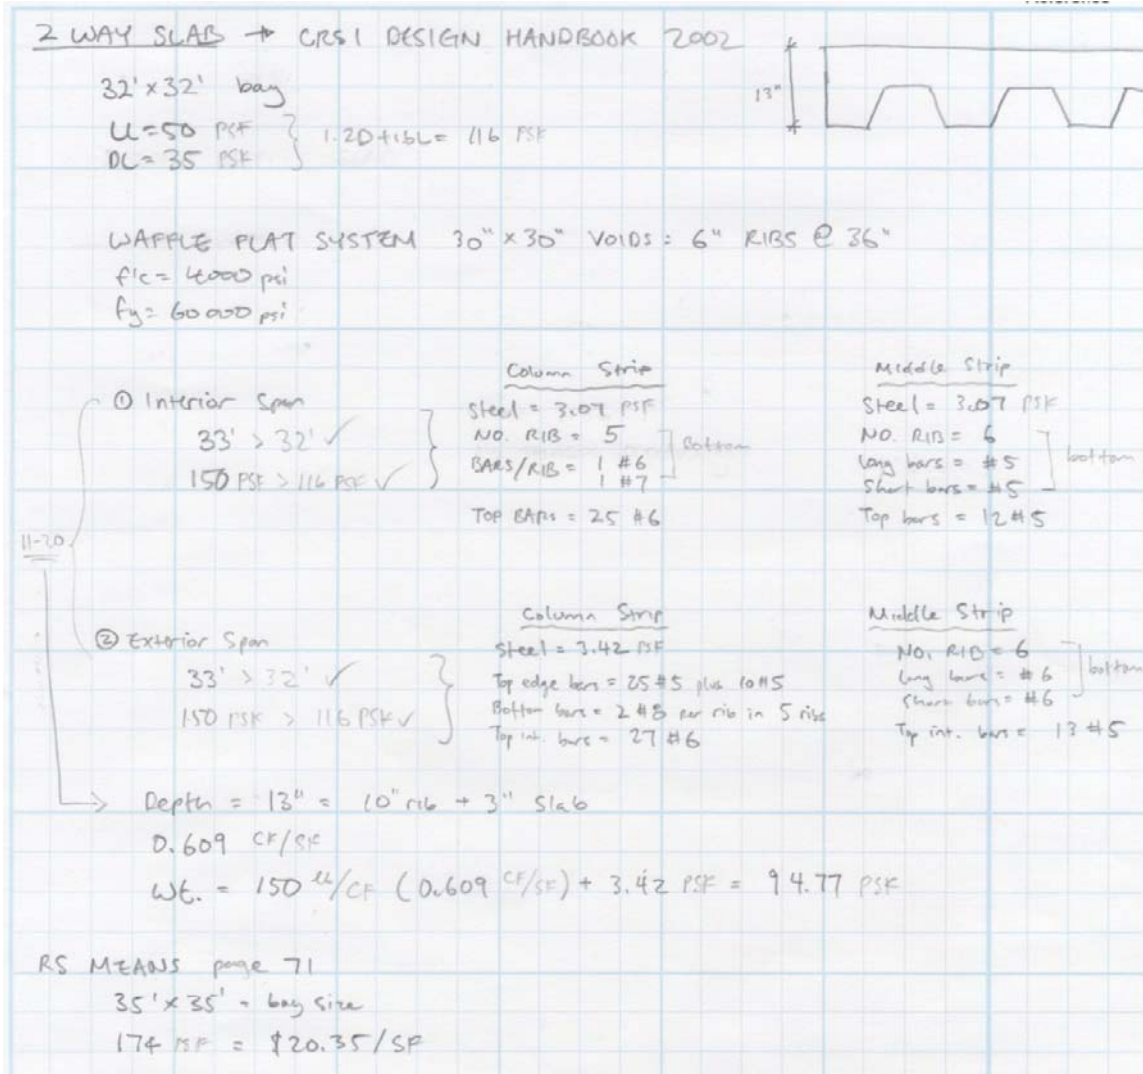 2 WAY SLAB → CRSI DESIGN HANDBOOK 2002
13"
32' x 32' bay
LL = 50 PSF
DL = 35 PSF
1.2D+1.6L = 116 PSF
WAFFLE FLAT SYSTEM 30" x 30" VOIDS : 6" RIBS @ 36"
f'c = 4000 psi
fy = 60000 psi
① Interior Span
33' > 32' ✓
150 PSF > 116 PSF ✓
Column Strip
Steel = 3.07 PSF
NO. RIB = 5
BARS/RIB = 1 #6
1 #7
Bottom
TOP BARS = 25 #6
Middle Strip
Steel = 3.07 PSF
NO. RIB = 6
Long bars = #5
Short bars = #5
bottom
Top bars = 12 #5
11-20
② Exterior Span
33' > 32' ✓
150 PSF > 116 PSF ✓
Column Strip
Steel = 3.42 PSF
Top edge bars = 25 #5 plus 10 #5
Bottom bars = 2 #8 per rib in 5 ribs
Top int. bars = 27 #6
Middle Strip
NO. RIB = 6
Long bars = #6
Short bars = #6
bottom
Top int. bars = 13 #5
Depth = 13" = 10" rib + 3" Slab
0.609 CF/SF
Wt. = 150 lb/CF (0.609 CF/SF) + 3.42 PSF = 94.77 PSF
RS MEANS page 71
35' x 35' = bay size
174 PSF = $20.35/SF